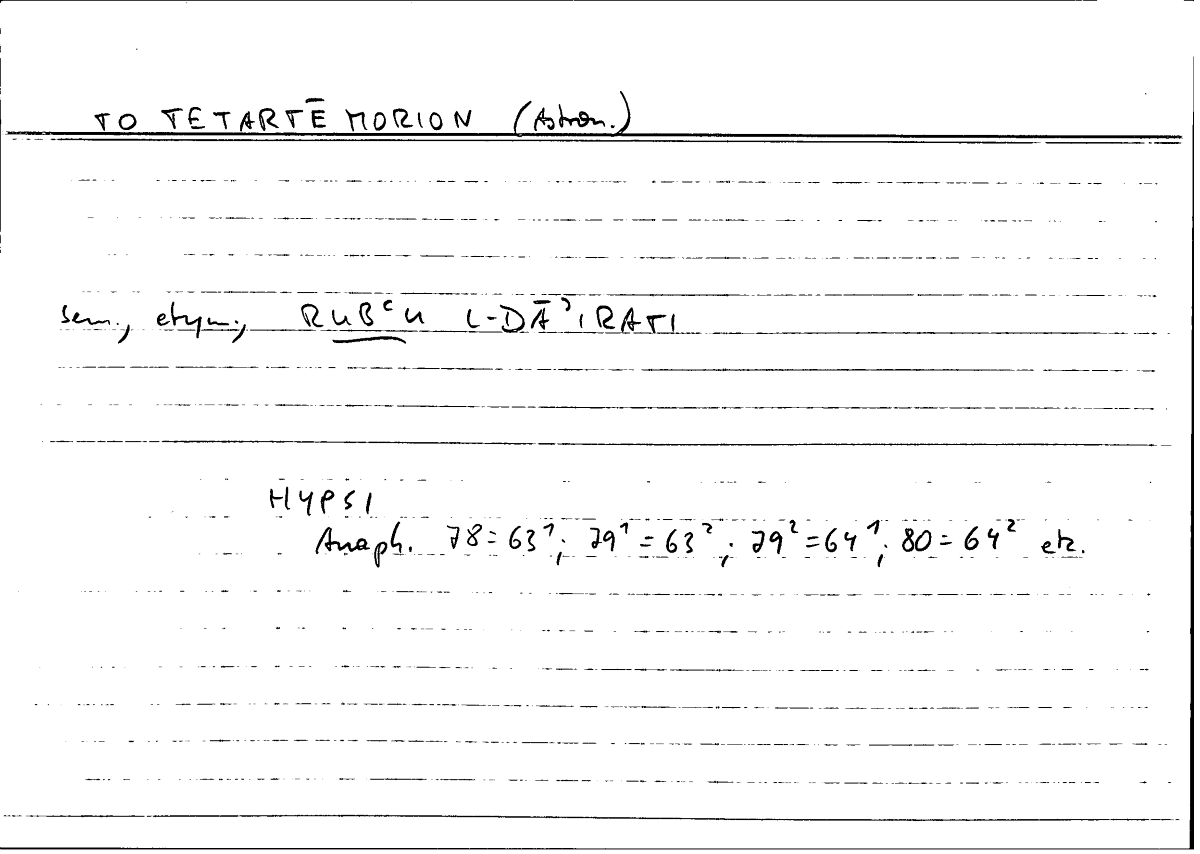 TO TETARTĒMORION (Astron.)
sem., etym., RUBʿU L-DĀʾIRATI
HYPSI
Anaph. 78 = 63¹; 79¹ = 63²; 79² = 64¹; 80 = 64² etc.